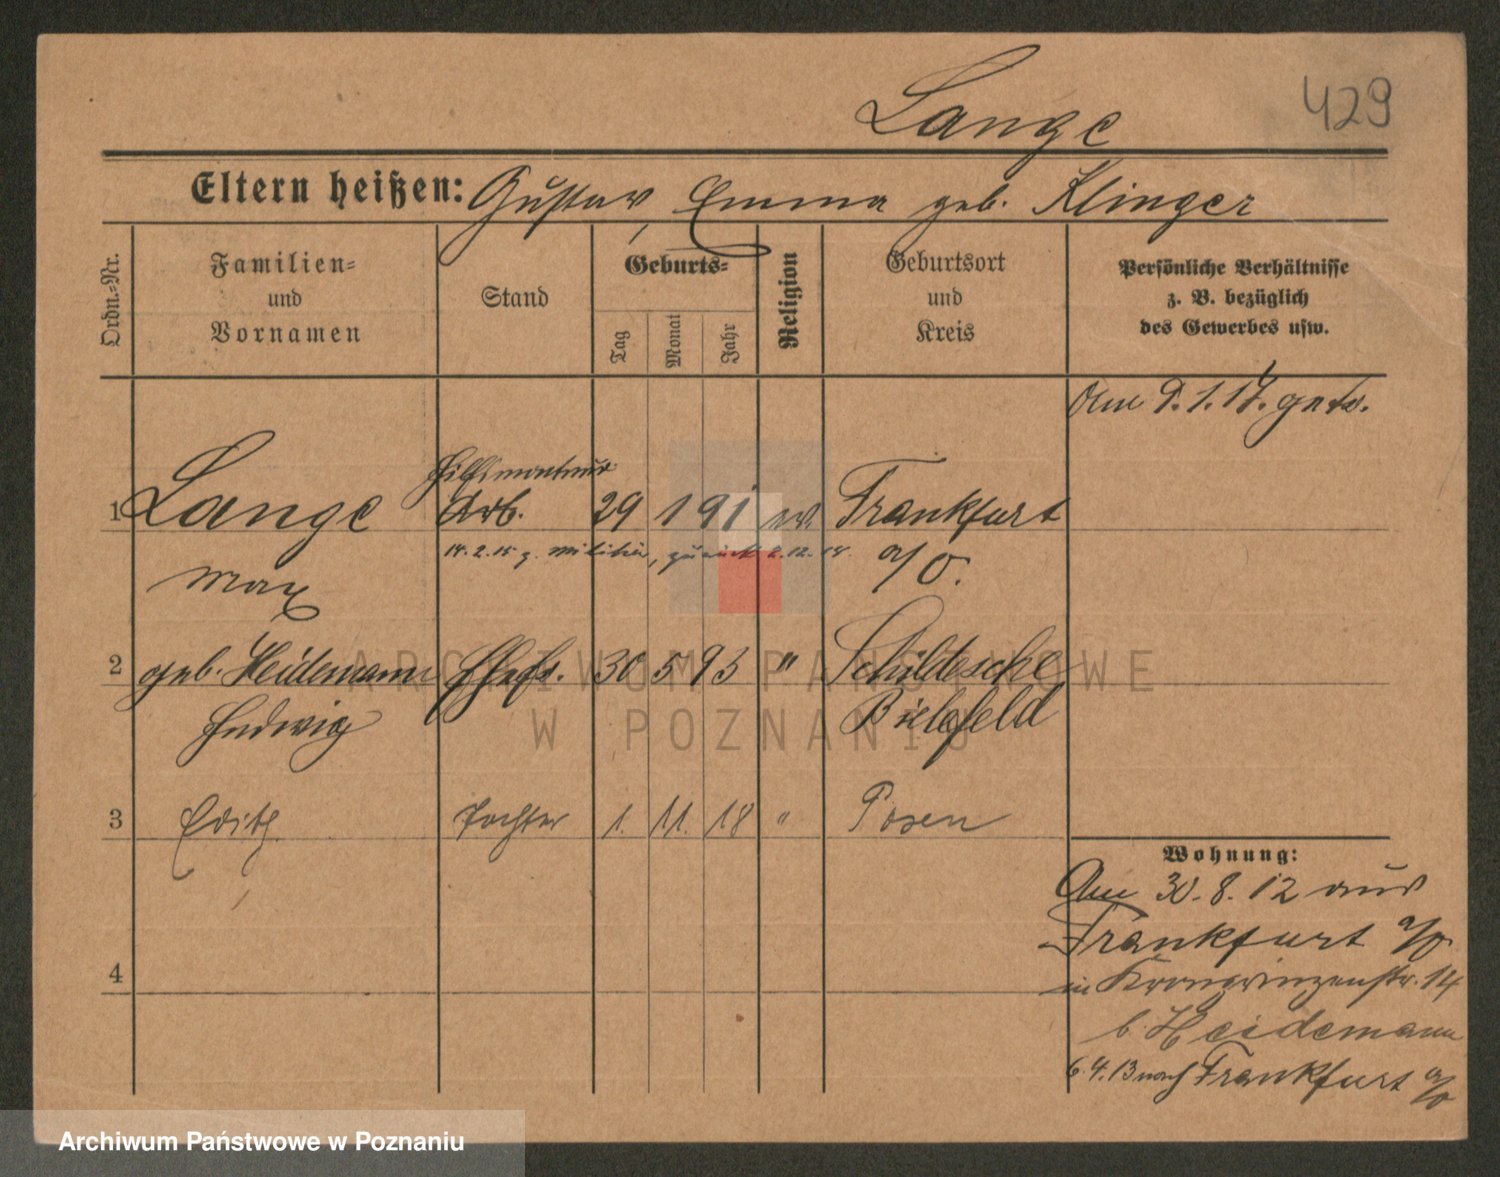 Lange 429
Eltern heißen: Gustav, Emma geb. Klinger
Ordn.-Nr.
Familien-
und
Vornamen
Stand
Geburts-
Tag
Monat
Jahr
Religion
Geburtsort
und
Kreis
Persönliche Verhältnisse
z. B. bezüglich
des Gewerbes usw.
Am 9.1.17. getr.
Hilfsmonteur
1 Lange Arb. 29 1 91 ev. Frankfurt
14.2.15 z. Militär, zurück 2.12.18. a/O.
Max
2 geb. Heidemann Ehefr. 30 5 93 " Schildesche
Hedwig Bielefeld
3 Edith Tochter 1. 11. 18 " Posen
4
Wohnung:
Am 30.8.12 aus
Frankfurt a/O
in Kronprinzenstr. 14
b. Heidemann
6.4.13 nach Frankfurt a/O
ARCHIWUM PAŃSTWOWE
W POZNANIU
Archiwum Państwowe w Poznaniu